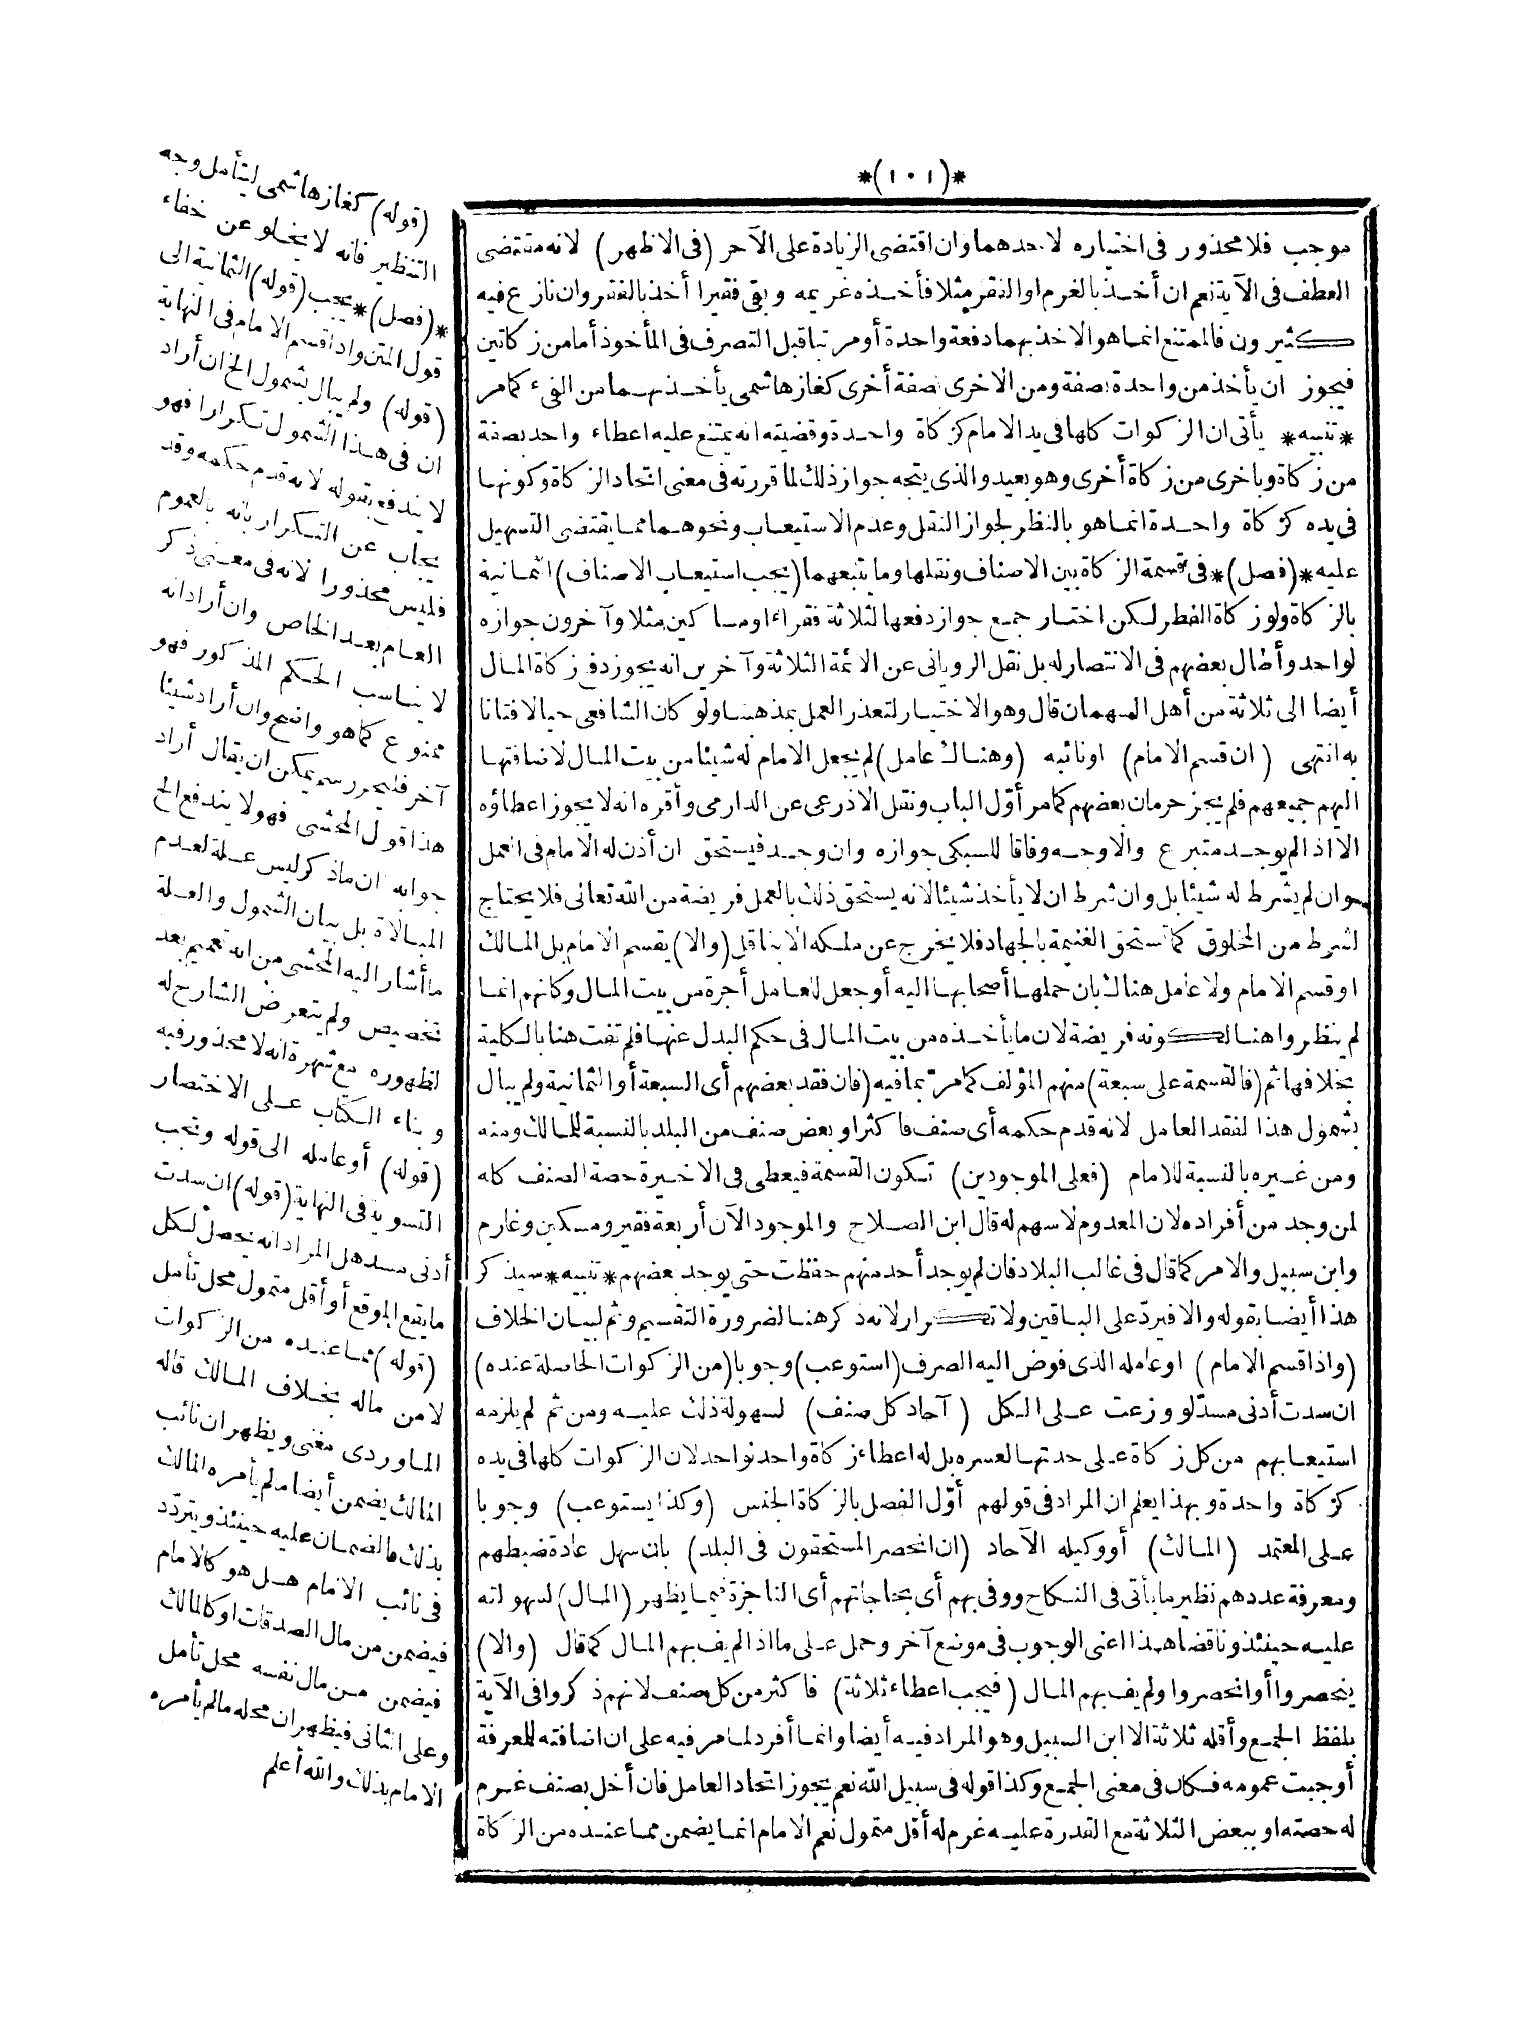 *(١٠١)*
موجب فلا محذور في اختياره لاحدهما وان اقتضى الزيادة على الآخر (في الاظهر) لانه مقتضى
العطف في الآية نعم ان أخذ بالغرم او الفقر مثلا فأخذه غريمه وبقى فقيرا أخذ بالفقر وان نازع فيه
كثيرون فالممتنع انما هو الاخذ بهما دفعة واحدة أو مرتبا قبل التصرف في المأخوذ أما من زكاتين
فيجوز ان يأخذ من واحدة بصفة ومن الاخرى بصفة أخرى كغاز هاشمى يأخذ بهما من الفىء كما مر
*تنبيه* يأتى ان الزكوات كلها في يد الامام كزكاة واحدة وقضيته انه يمتنع عليه اعطاء واحد بصفة
من زكاة وباخرى من زكاة أخرى وهو بعيد والذى يتجه جواز ذلك لما قررته في معنى اتحاد الزكاة وكونها
في يده كزكاة واحدة انما هو بالنظر لجواز النقل وعدم الاستيعاب ونحوهما مما يقتضى التسهيل
عليه *(فصل)* في قسمة الزكاة بين الاصناف ونقلها وما يتبعهما (يجب استيعاب الاصناف) الثمانية
بالزكاة ولو زكاة الفطر لكن اختار جمع جواز دفعها لثلاثة فقراء او مساكين مثلا وآخرون جوازه
لواحد وأطال بعضهم في الانتصار له بل نقل الرويانى عن الائمة الثلاثة وآخرين انه يجوز دفع زكاة المال
أيضا الى ثلاثة من أهل السهمان قال وهو الاختيار لتعذر العمل بمذهبنا ولو كان الشافعى حيا لافتانا
به انتهى (ان قسم الامام) او نائبه (وهناك عامل) لم يجعل الامام له شيئا من بيت المال لاضافتها
اليهم جميعهم فلم يجز حرمان بعضهم كما مر أوّل الباب ونقل الاذرعى عن الدارمى وأقره انه لا يجوز اعطاؤه
الا اذا لم يوجد متبرع والاوجه وفاقا للسبكى جوازه وان وجد فيستحق ان أذن له الامام في العمل
وان لم يشرط له شيئا بل وان شرط ان لا يأخذ شيئا لانه يستحق ذلك بالعمل فريضة من الله تعالى فلا يحتاج
لشرط من المخلوق كما تستحق الغنيمة بالجهاد فلا يخرج عن ملكه الا بناقل (والا) يقسم الامام بل المالك
او قسم الامام ولا عامل هناك بان حملها أصحابها اليه أو جعل للعامل أجرة من بيت المال وكانهم انما
لم ينظروا هنا لكونه فريضة لان ما يأخذه من بيت المال في حكم البدل عنها فلم تفت هنا بالكلية
بخلافها ثم (فالقسمة على سبعة) منهم المؤلف كما مرّ بما فيه (فان فقد بعضهم أى السبعة أو الثمانية ولم يبال
بشمول هذا لفقد العامل لانه قدم حكمه أى صنف فاكثر او بعض صنف من البلد بالنسبة للمالك ومنه
ومن غيره بالنسبة للامام (فعلى الموجودين) تكون القسمة فيعطى في الاخيرة حصة الصنف كله
لمن وجد من أفراده لان المعدوم لا سهم له قال ابن الصلاح والموجود الآن أربعة فقير ومسكين وغارم
وابن سبيل والامر كما قال في غالب البلاد فان لم يوجد أحد منهم حفظت حتى يوجد بعضهم *تنبيه* سيذكر
هذا أيضا بقوله والا فيردّ على الباقين ولا تكرار لانه ذكر هنا لضرورة التقسيم وثم لبيان الخلاف
(واذا قسم الامام) او عامله الذى فوض اليه الصرف (استوعب) وجوبا (من الزكوات الحاصلة عنده)
ان سدت أدنى مسدّ لو وزعت على الكل (آحاد كل صنف) لسهولة ذلك عليه ومن ثم لم يلزمه
استيعابهم من كل زكاة على حدتها لعسره بل له اعطاء زكاة واحد لواحد لان الزكوات كلها في يده
كزكاة واحدة وبهذا يعلم ان المراد في قولهم أوّل الفصل بالزكاة الجنس (وكذا يستوعب) وجوبا
على المعتمد (المالك) أو وكيله الآحاد (ان انحصر المستحقون في البلد) بان سهل عادة ضبطهم
ومعرفة عددهم نظير ما يأتى في النكاح ووفى بهم أى بحاجاتهم أى الناجزة فيما يظهر (المال) لسهولته
عليه حينئذ وناقضا هذا اعنى الوجوب في موضع آخر وحمل على ما اذا لم يف بهم المال كما قال (والا)
ينحصروا أو انحصروا ولم يف بهم المال (فيجب اعطاء ثلاثة) فاكثر من كل صنف لانهم ذكروا في الآية
بلفظ الجمع وأقله ثلاثة الا ابن السبيل وهو المراد فيه أيضا وانما أفرد لما مر فيه على ان اضافته للمعرفة
أوجبت عمومه فكان في معنى الجمع وكذا قوله في سبيل الله نعم يجوز اتحاد العامل فان أخل بصنف غرم
له حصته او ببعض الثلاثة مع القدرة عليه غرم له أقل متمول نعم الامام انما يضمن مما عنده من الزكاة
(قوله) كغاز هاشمى ليتأمل وجه
التنظير فانه لا يخلو عن خفاء
*(فصل)* يجب (قوله) الثمانية الى
قول المتن واذا قسم الامام في النهاية
(قوله) ولم يبال بشمول الخ ان أراد
ان في هذا الشمول تكرارا فهو
لا يندفع بقوله لانه قدم حكمه وقد
يجاب عن التكرار بانه بالعموم
فليس محذورا لانه في معنى ذكر
العام بعد الخاص وان أراد انه
لا يناسب الحكم المذكور فهو
ممنوع كما هو واضح وان أراد شيئا
آخر فليحرر سم يمكن ان يقال أراد
هذا قول المحشى فهو لا يندفع الخ
جوابه ان ما ذكر ليس علة لعدم
المبالاة بل بيان الشمول والعلة
ما أشار اليه المحشى من انه تعميم بعد
تخصيص ولم يتعرض الشارح له
لظهوره مع شهرة انه لا محذور فيه
وبناء الكتاب على الاختصار
(قوله) أو عامله الى قوله وتجب
التسوية في النهاية (قوله) ان سدت
أدنى مسد هل المراد انه يحصل لكل
ما يقع الموقع أو أقل متمول محل تأمل
(قوله) مما عنده من الزكوات
لا من ماله بخلاف المالك قاله
الماوردى مغنى ويظهر ان نائب
المالك يضمن أيضا ما لم يأمره المالك
بذلك فالضمان عليه حينئذ ويتردّد
في نائب الامام هل هو كالامام
فيضمن من مال الصدقات او كالمالك
فيضمن من مال نفسه محل تأمل
وعلى الثانى فيظهر ان محله ما لم يأمره
الامام بذلك والله أعلم